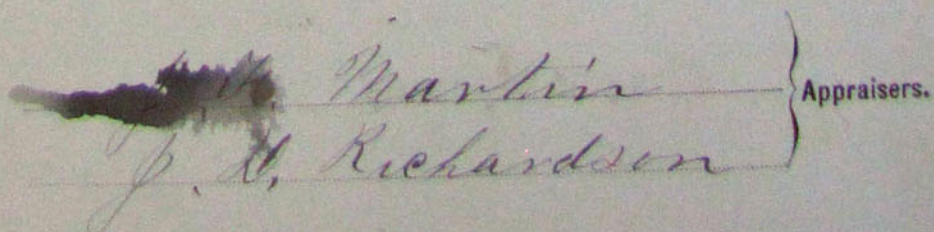 Martin
J. H. Richardson
Appraisers.